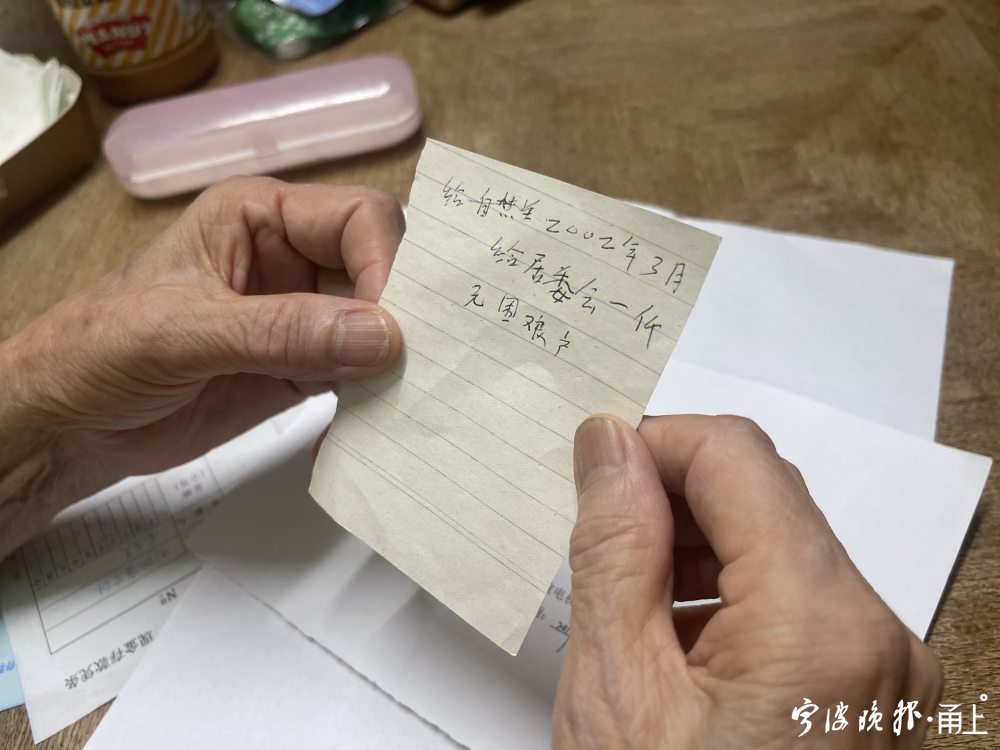 给自 2002年3月
给居委会一仟
元困难户
№
现金存款凭条
宁波晚报·甬上